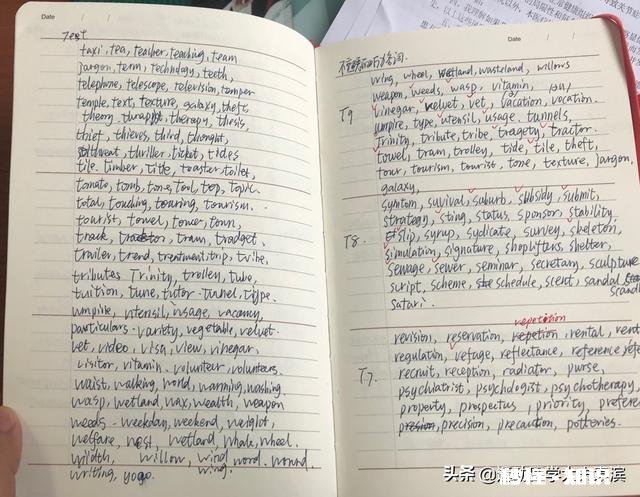 Date
Test
taxi, tea, teacher, teaching, team
jargon, term, technology, teeth,
telephone, telescope, television, temper
temple, text, texture, galaxy, theft
theory, therapy, thesis,
thief, thieves, third, thought,
threat, thriller, ticket, tides
tile, timber, title, toaster, toilet,
tomato, tomb, tone, tool, top, topic,
total, touching, touring, tourism,
tourist, towel, tower, town,
track, tram,
trailer, trend, treatment, trip, tribe,
tributes, Trinity, trolley, tube,
tuition, tune, tutor, tunnel, type,
umpire, utensil, usage, vacancy,
particulars, variety, vegetable, velvet,
vet, video, visa, view, vinegar,
visitor, vitamin, volunteer, volunteers,
waist, walking, world, warming, washing,
wasp, wetland, wax, wealth, weapon
weeds, weekday, weekend, weight,
welfare, west, wetland, whale, wheel,
width, willow, wind, word, wound,
writing, yoga. wing.
Date
wing, wheel, wetland, wasteland, willows
weapon, weeds, wasp, vitamin,
T9
vinegar, velvet, vet, vacation, vocation.
umpire, type, utensil, usage, tunnels,
Trinity, tribute, tribe, tragety, tractor.
towel, tram, trolley, tide, tile, theft,
tour, tourism, tourist, tone, texture, jargon,
galaxy,
symtom, suvival, suburb, subsidy, submit,
strategy, sting, status, sponsor, stability,
T8.
slip, syrup, sydicate, survey, skeleton,
simulation, signature, shoplifters, shelter,
sewage, sewer, seminar, secretary, sculpture
script, scheme, schedule, scent, sandal,
safari.
repetition
revision, reservation, repetion, rental, rent
regulation, refuge, reflectance, reference
T7.
recruit, reception, radiator, purse,
psychiatrist, psychologist, psychotherapy,
property, prospectus, priority, prefere
precision, precaution, potteries.
头条 @